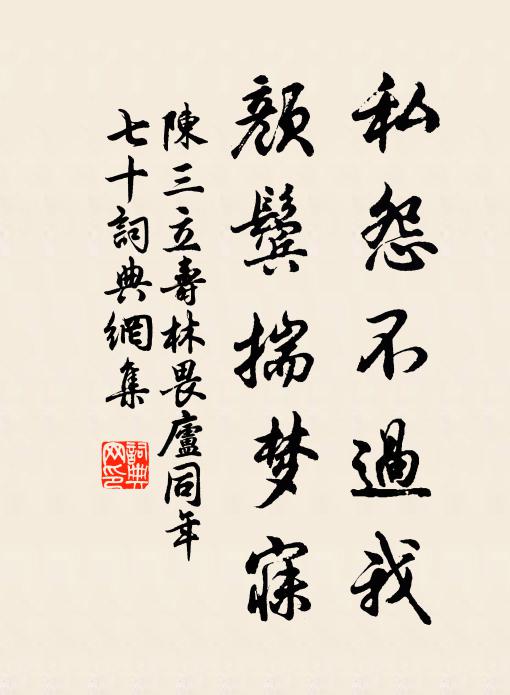 私怨不過我
顏鬢揣梦寐
陳三立壽林畏廬同年
七十詞典網集
詞典
网印